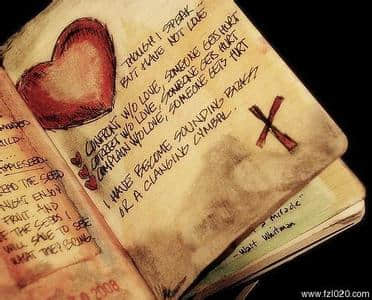 THOUGH I SPEAK
BUT HAVE NOT LOVE
CONFRONT W/O LOVE, SOMEONE GETS HURT
CORRECT W/O LOVE, SOMEONE GETS HURT
COMPLAIN W/O LOVE, SOMEONE GETS HURT
I HAVE BECOME SOUNDING BRASS
OR A CLANGING CYMBAL.
X
APPLESEED
THE SEED
ENJOY
FRUIT AND
THE SEEDS I
WILL SAVE TO SEE
WHAT THEY BRING
2008
a miracle"
- Walt Whitman
www.fzl020.com